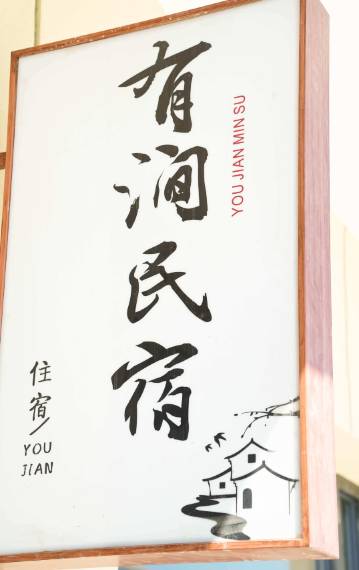 有涧民宿
YOU JIAN MIN SU
住宿
YOU
JIAN